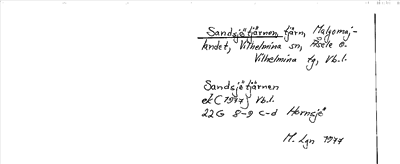 Sandsjötjärnen, tjärn, Malgomaj-
landet, Vilhelmina sn, Åsele o.
Vilhelmina tg, Vb.l.
Sandsjötjärnen
ek (1977) Vb.l.
22G 8-9 c-d Hornsjö
M. Lgn 1977